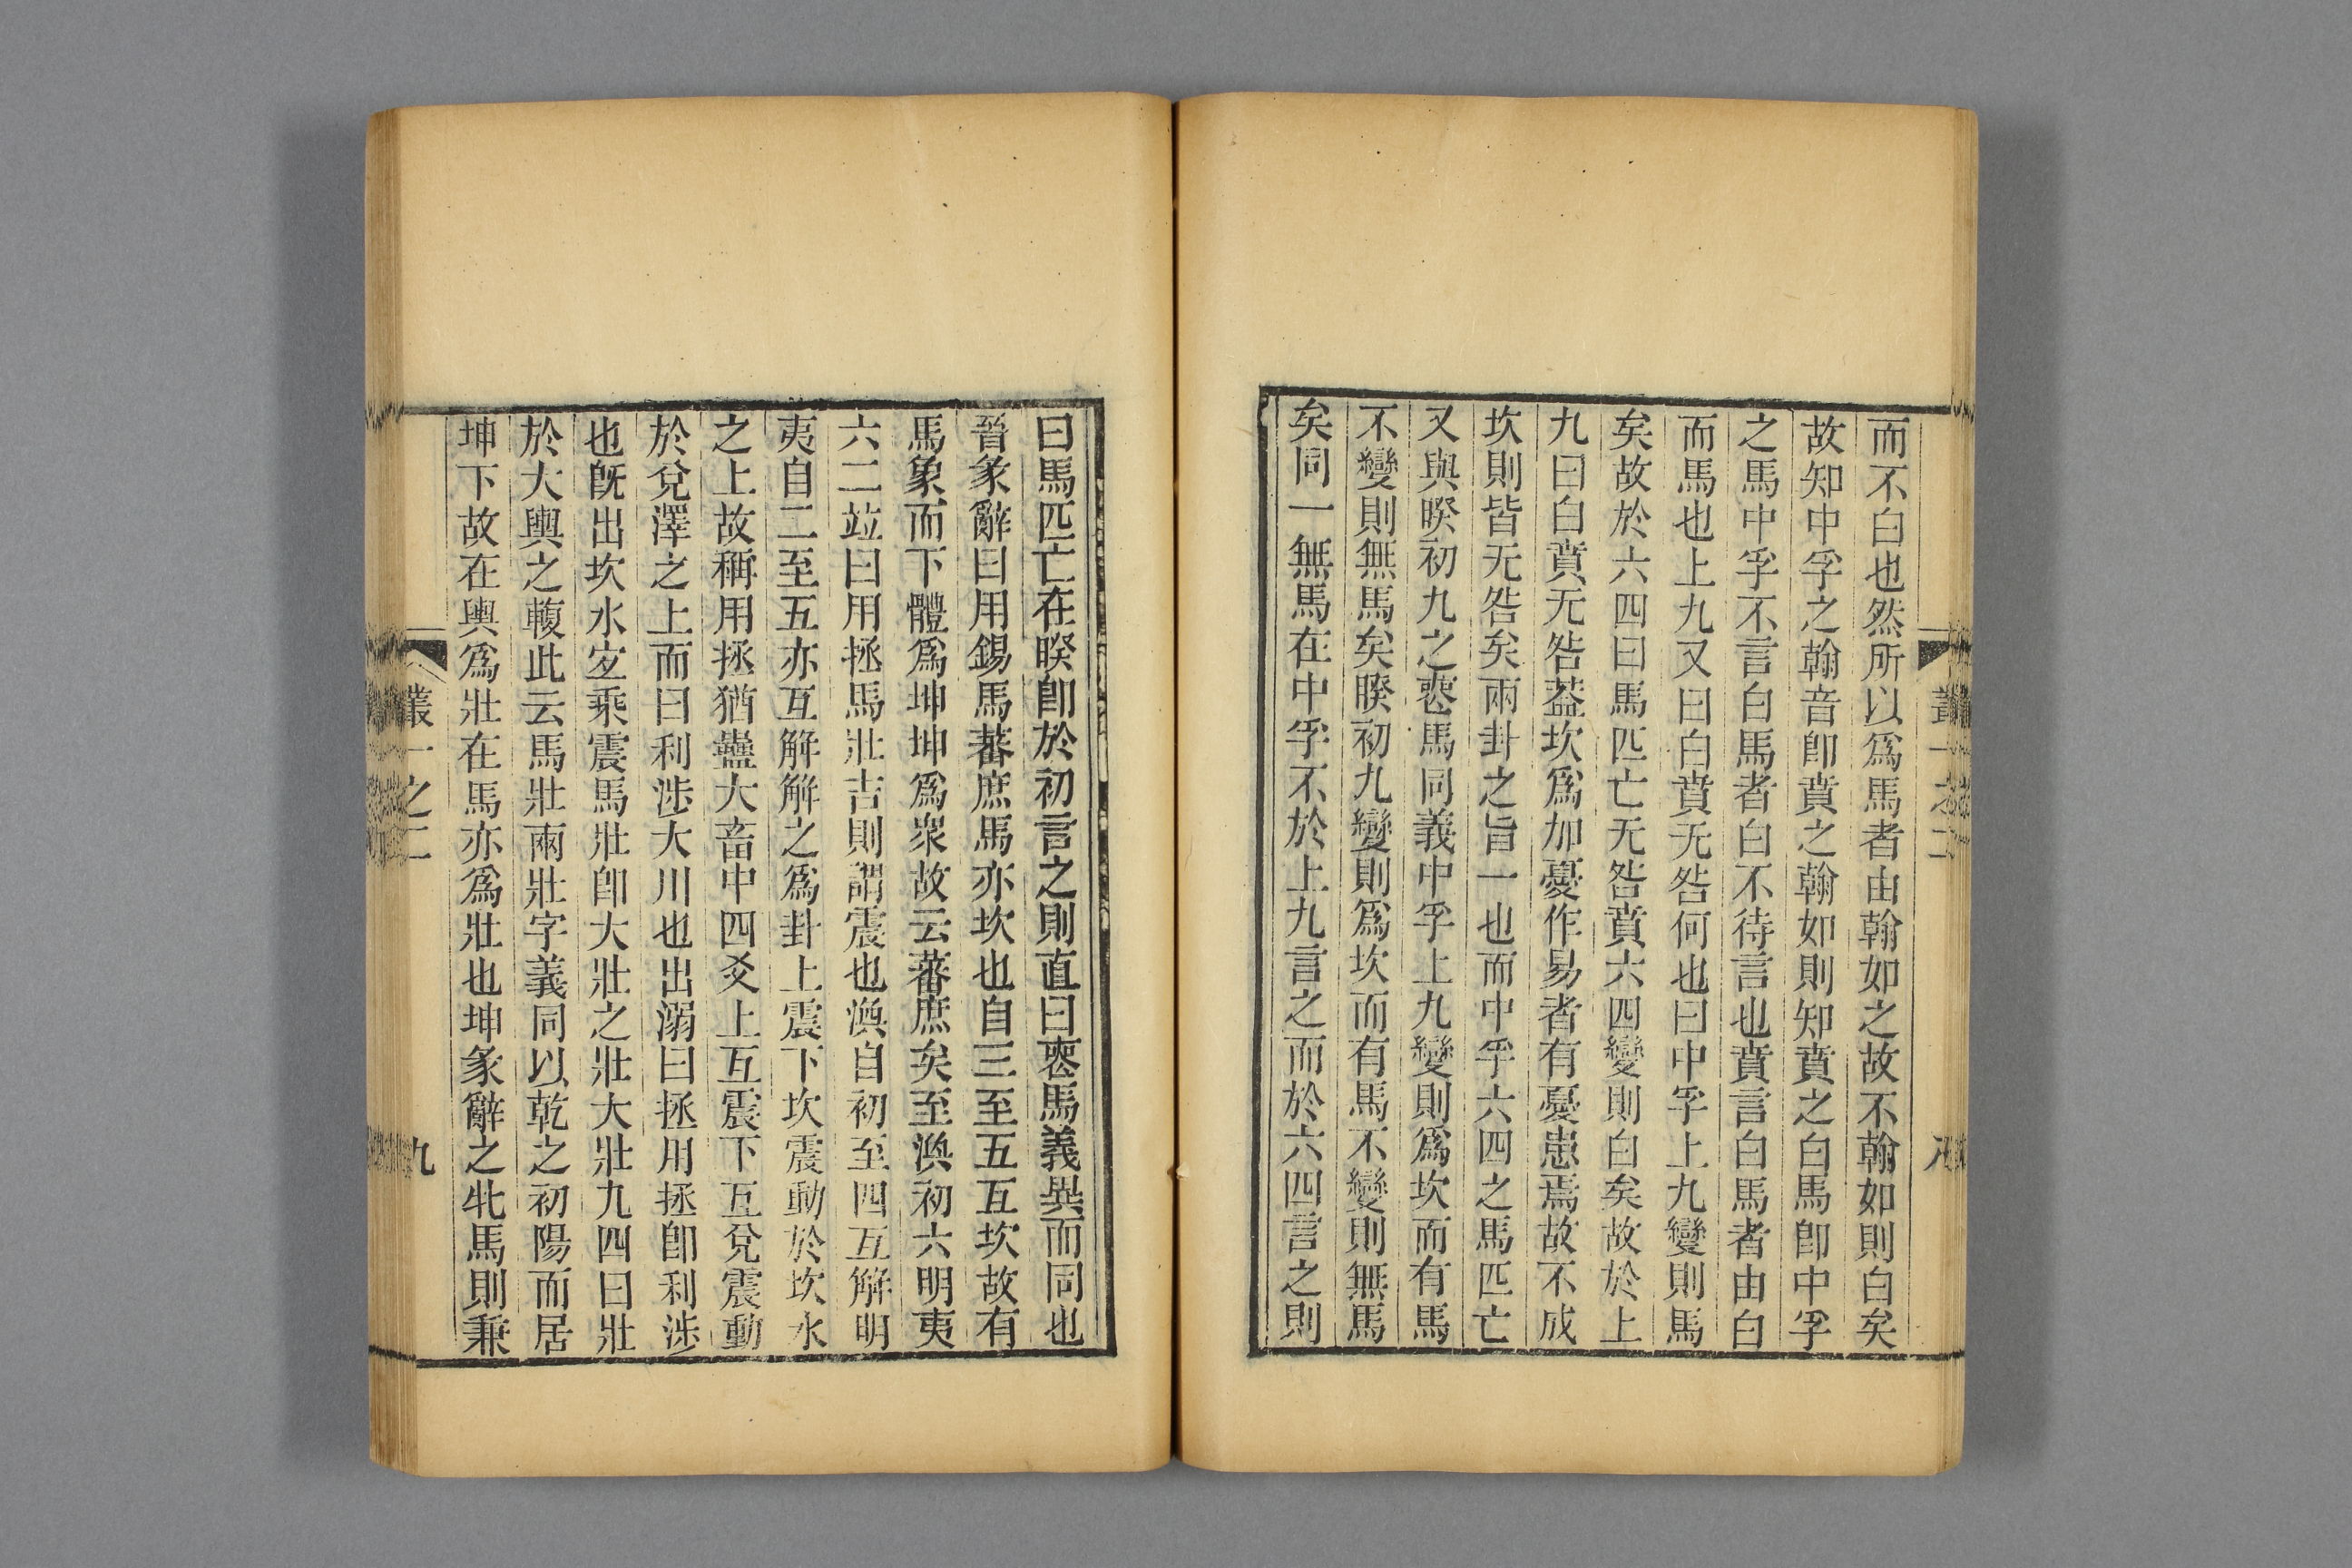 而不白也然所以爲馬者由翰如之故不翰如則白矣
故知中孚之翰音卽賁之翰如則知賁之白馬卽中孚
之馬中孚不言白馬者白不待言也賁言白馬者由白
而馬也上九又曰白賁无咎何也曰中孚上九變則馬
矣故於六四曰馬匹亡无咎賁六四變則白矣故於上
九曰白賁无咎葢坎爲加憂作易者有憂患焉故不成
坎則皆无咎矣兩卦之旨一也而中孚六四之馬匹亡
又與睽初九之喪馬同義中孚上九變則爲坎而有馬
不變則無馬矣睽初九變則爲坎而有馬不變則無馬
矣同一無馬在中孚不於上九言之而於六四言之則
叢一之二
曰馬匹亡在睽卽於初言之則直曰喪馬義異而同也
晉彖辭曰用錫馬蕃庶馬亦坎也自三至五互坎故有
馬象而下體爲坤坤爲衆故云蕃庶矣至渙初六明夷
六二竝曰用拯馬壯吉則謂震也渙自初至四互解明
夷自二至五亦互解解之爲卦上震下坎震動於坎水
之上故稱用拯猶蠱大畜中四爻上互震下互兌震動
於兌澤之上而曰利涉大川也出溺曰拯用拯卽利涉
也旣出坎水㝎乘震馬壯卽大壯之壯大壯九四曰壯
於大輿之輹此云馬壯兩壯字義同以乾之初陽而居
坤下故在輿爲壯在馬亦爲壯也坤彖辭之牝馬則兼
叢一之二
九